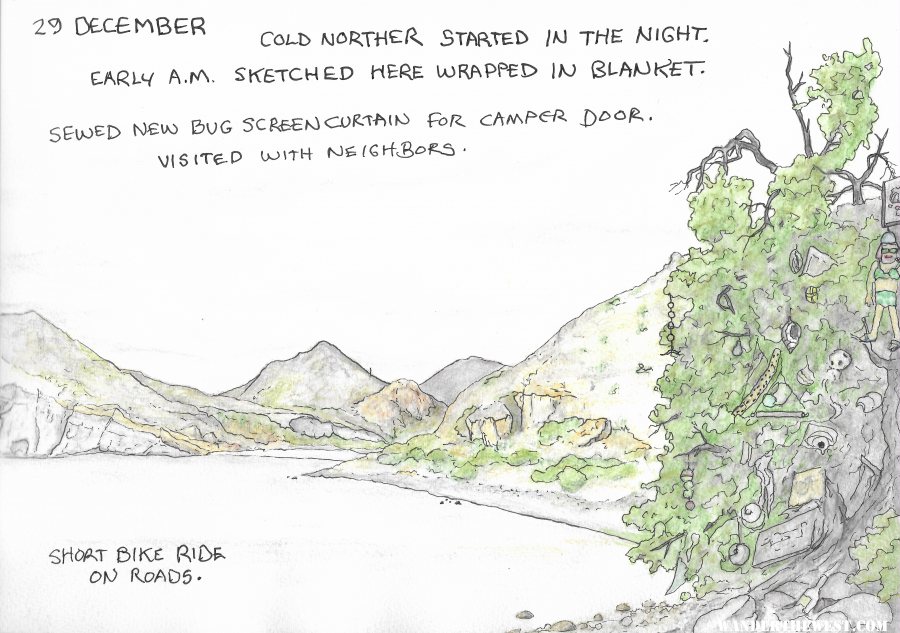 29 DECEMBER
COLD NORTHER STARTED IN THE NIGHT.
EARLY A.M. SKETCHED HERE WRAPPED IN BLANKET.
SEWED NEW BUG SCREEN CURTAIN FOR CAMPER DOOR.
VISITED WITH NEIGHBORS.
SHORT BIKE RIDE
ON ROADS.
©WANDERTHEWEST.COM